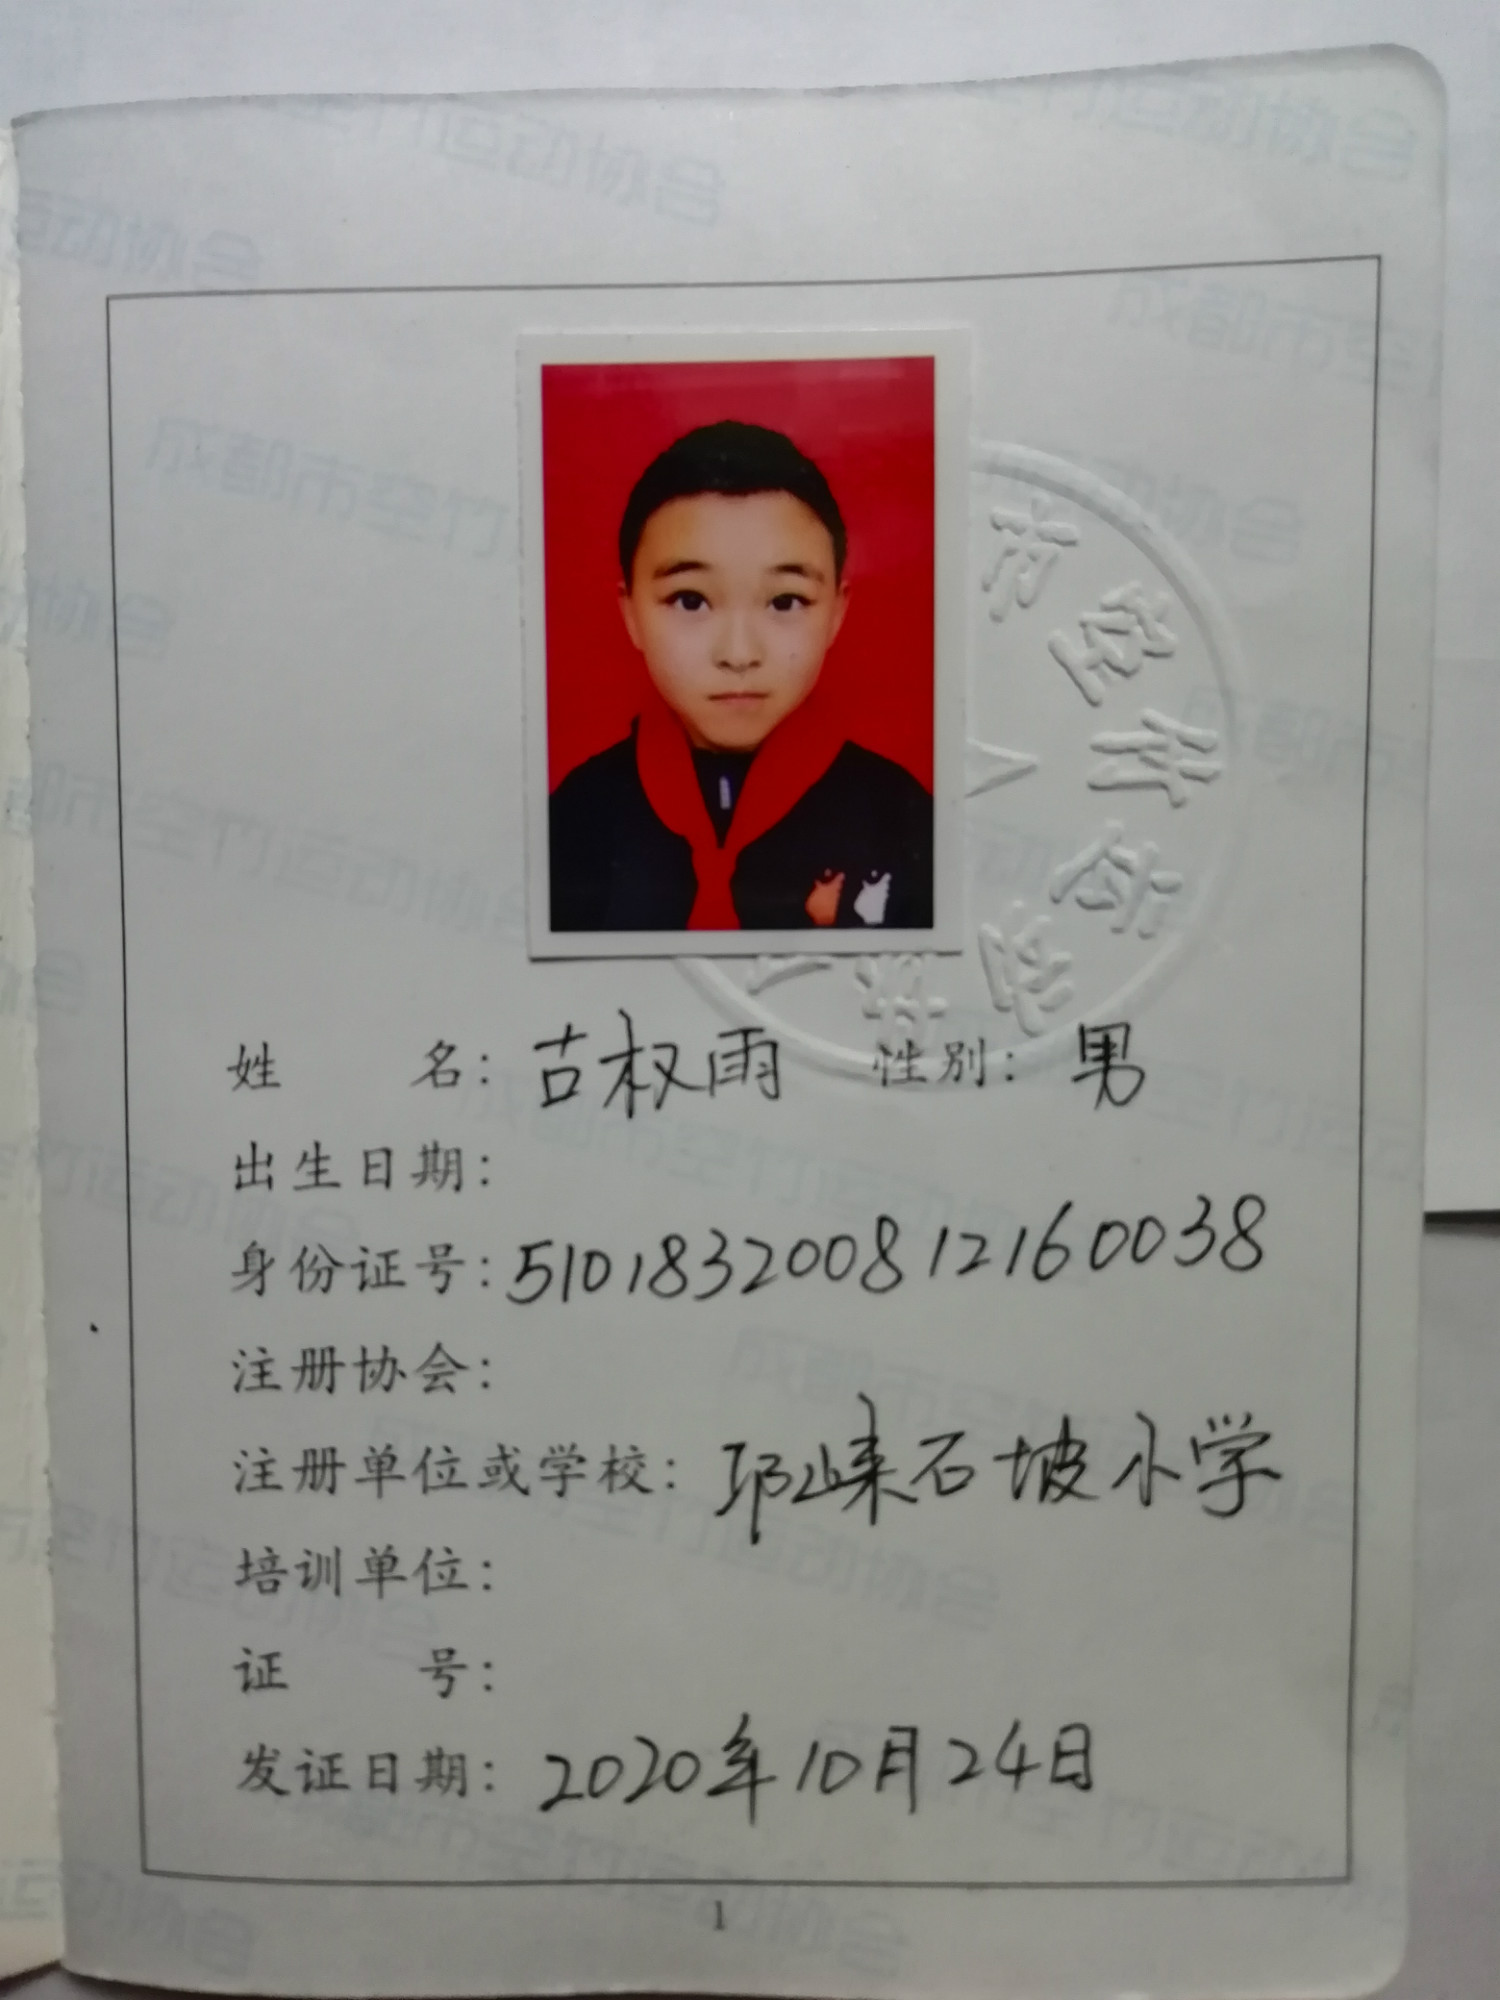 姓名：古权雨 性别：男
出生日期：
身份证号：510183200812160038
注册协会：
注册单位或学校：邛崃石坡小学
培训单位：
证号：
发证日期：2020年10月24日
1